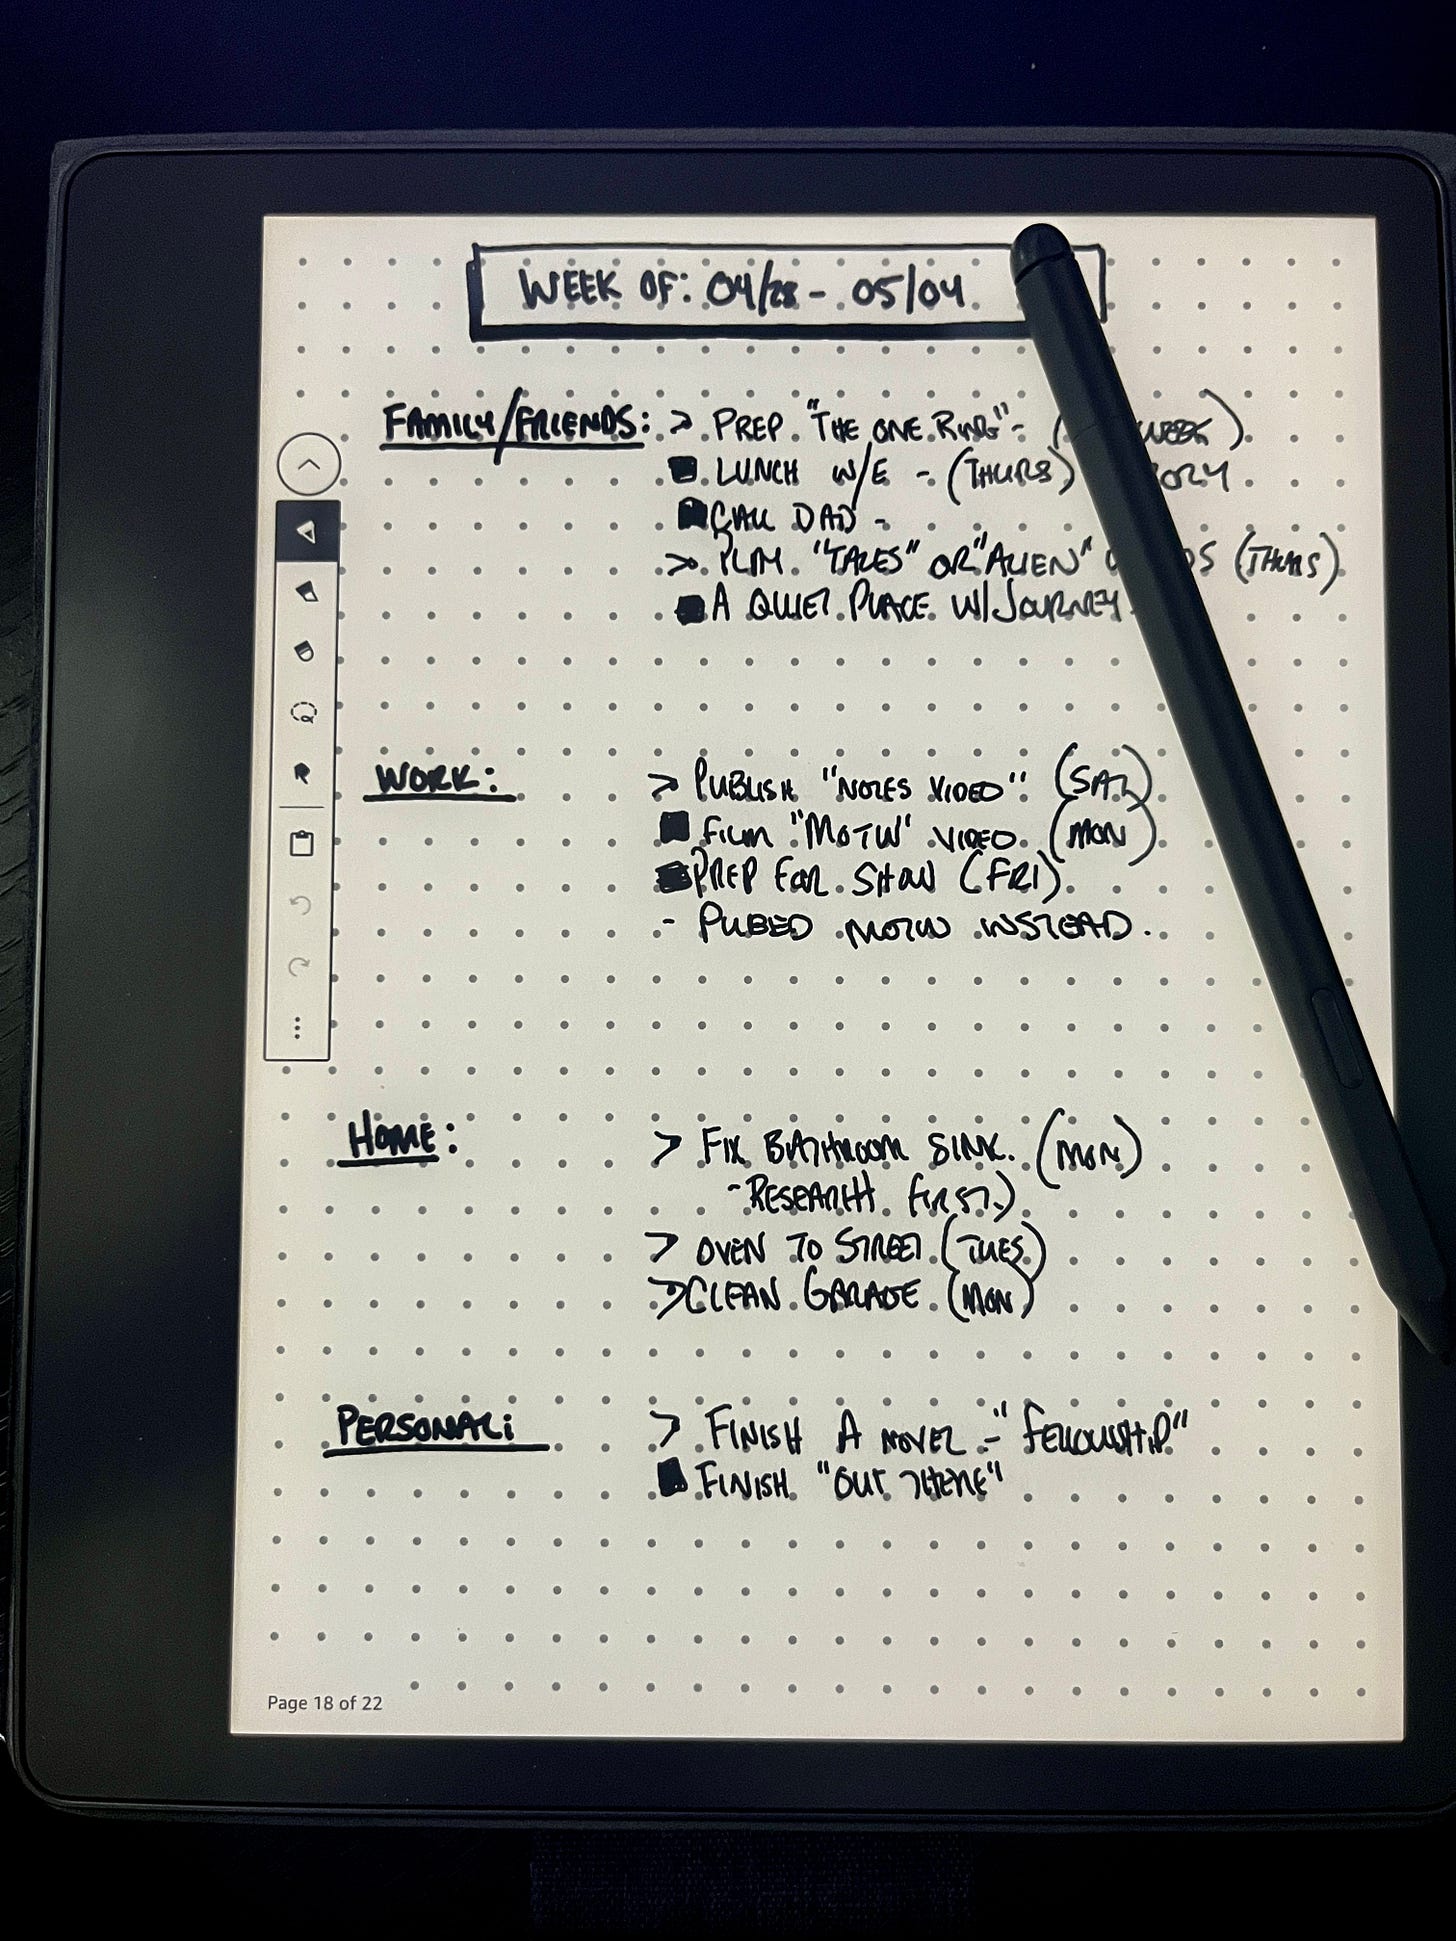 WEEK OF: 04/28 - 05/04
FAMILY/FRIENDS: > PREP "THE ONE RING" - ( WEEK)
LUNCH W/E - (THURS)
CALL DAD -
> "TALES" OR "ALIEN" (THURS)
A QUIET PLACE W/JOURNEY
WORK: > PUBLISH "NOTES VIDEO" (SAT)
FILM "MOTW" VIDEO (MON)
PREP FOR SHOW (FRI)
- PUBBED MOTW INSTEAD.
HOME: > FIX BATHROOM SINK. (MON)
- RESEARCH FIRST)
> OVEN TO STREET (TUES)
> CLEAN GARAGE (MON)
PERSONAL: > FINISH A NOVEL - "FELLOWSHIP"
FINISH "OUT THERE"
Page 18 of 22